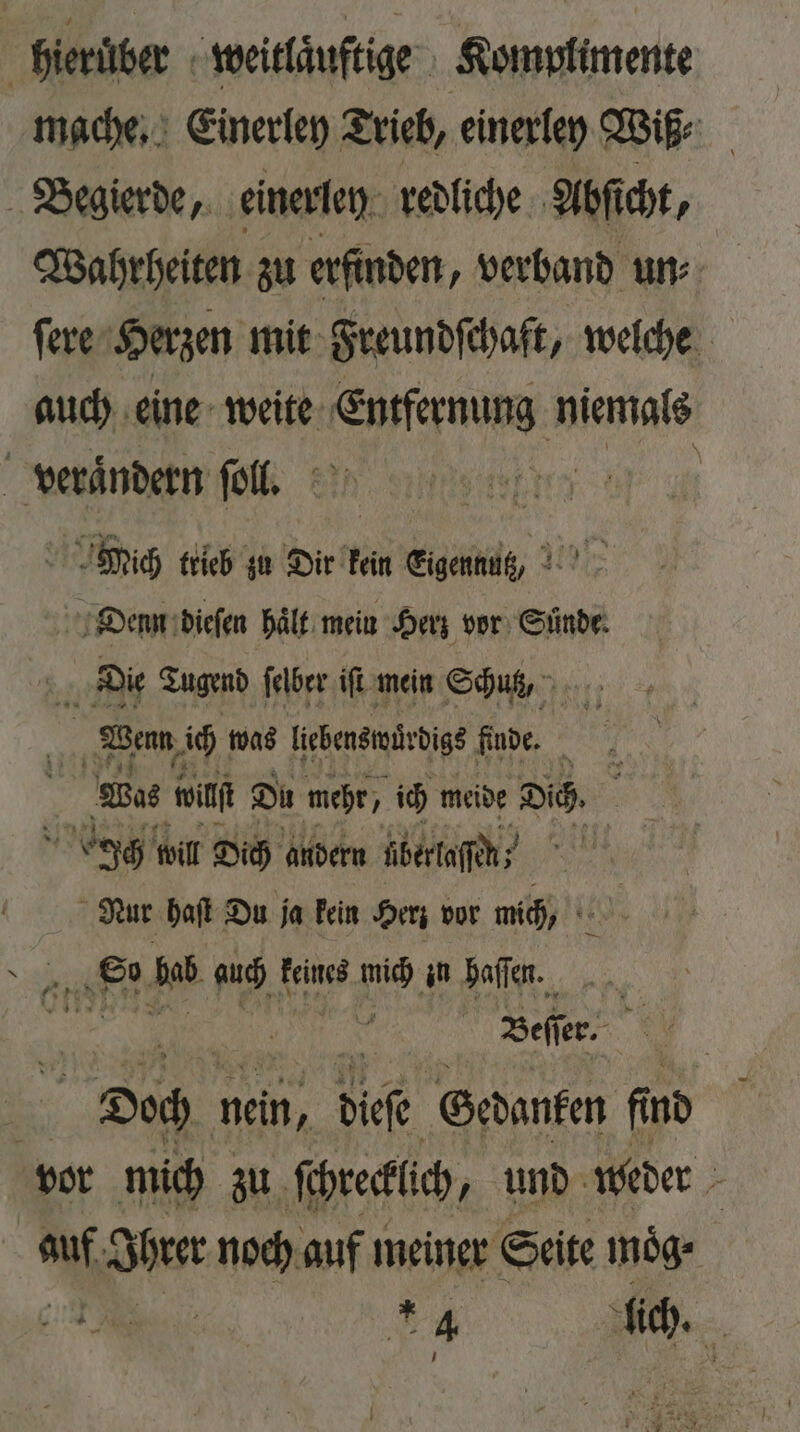 hieruͤber weitlaͤuftige Komplimente
mache. Einerley Trieb, einerley Wiß⸗
Begierde, einerley redliche Abſicht,
Wahrheiten zu erfinden, verband un⸗
ſere Herzen mit Freundſchaft, welche
auch eine weite Entfernung niemals
veraͤndern ſoll.
Mich trieb zu Dir kein Eigennutz,
Denn dieſen haͤlt mein Herz vor Suͤnde.
Die Tugend ſelber iſt mein Schutz,
Wenn ich was liebenswuͤrdigs finde.
Was willſt Du mehr, ich meide Dich.
Ich will Dich andern uͤberlaſſen;
Nur haſt Du ja kein Herz vor mich,
So hab auch keines mich zu haſſen.
Beſſer.
Doch nein, dieſe Gedanken find
vor mich zu ſchrecklich, und weder
auf Ihrer noch auf meiner Seite moͤg⸗
* 4 lich.